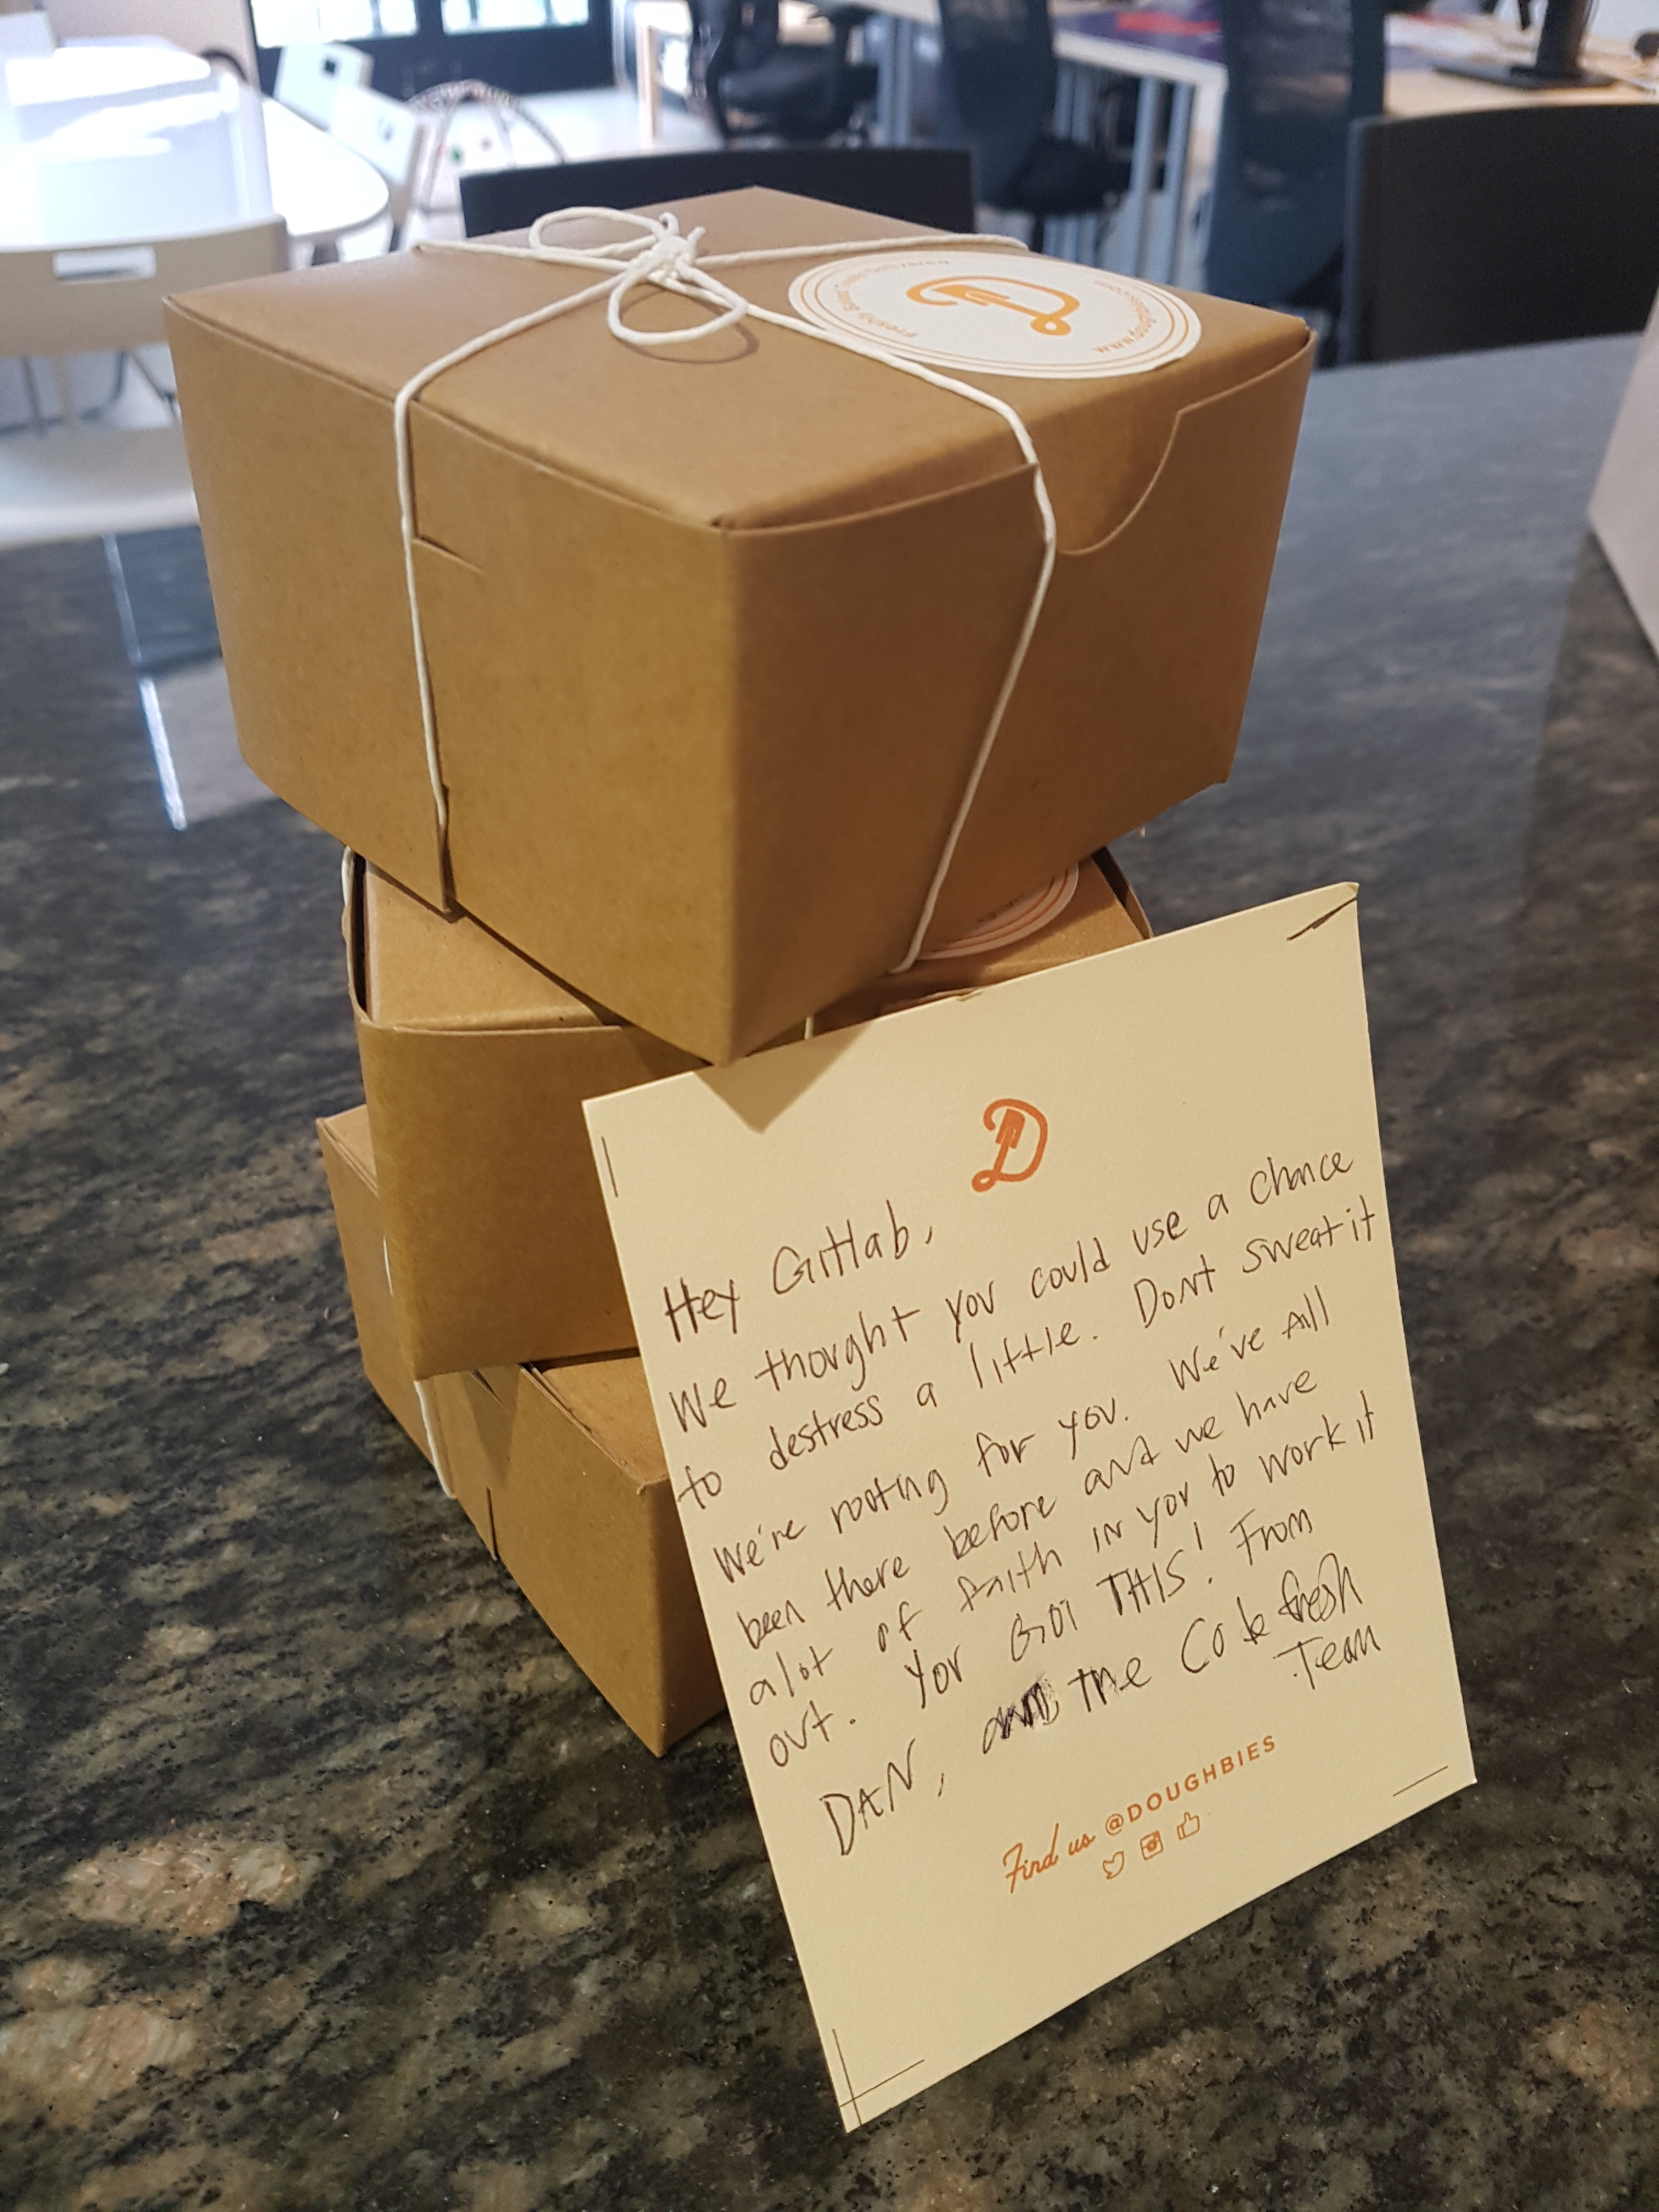 Freshly Baked, Just Delivered
www.doughbies.com
D
D
Hey Gitlab,
We thought you could use a chance
to destress a little. Dont sweat it
We're rooting for you. We've All
been there before and we have
alot of faith in you to work it
out. You GOT THIS! From
DAN, and the Codefresh
Team
Find us @DOUGHBIES